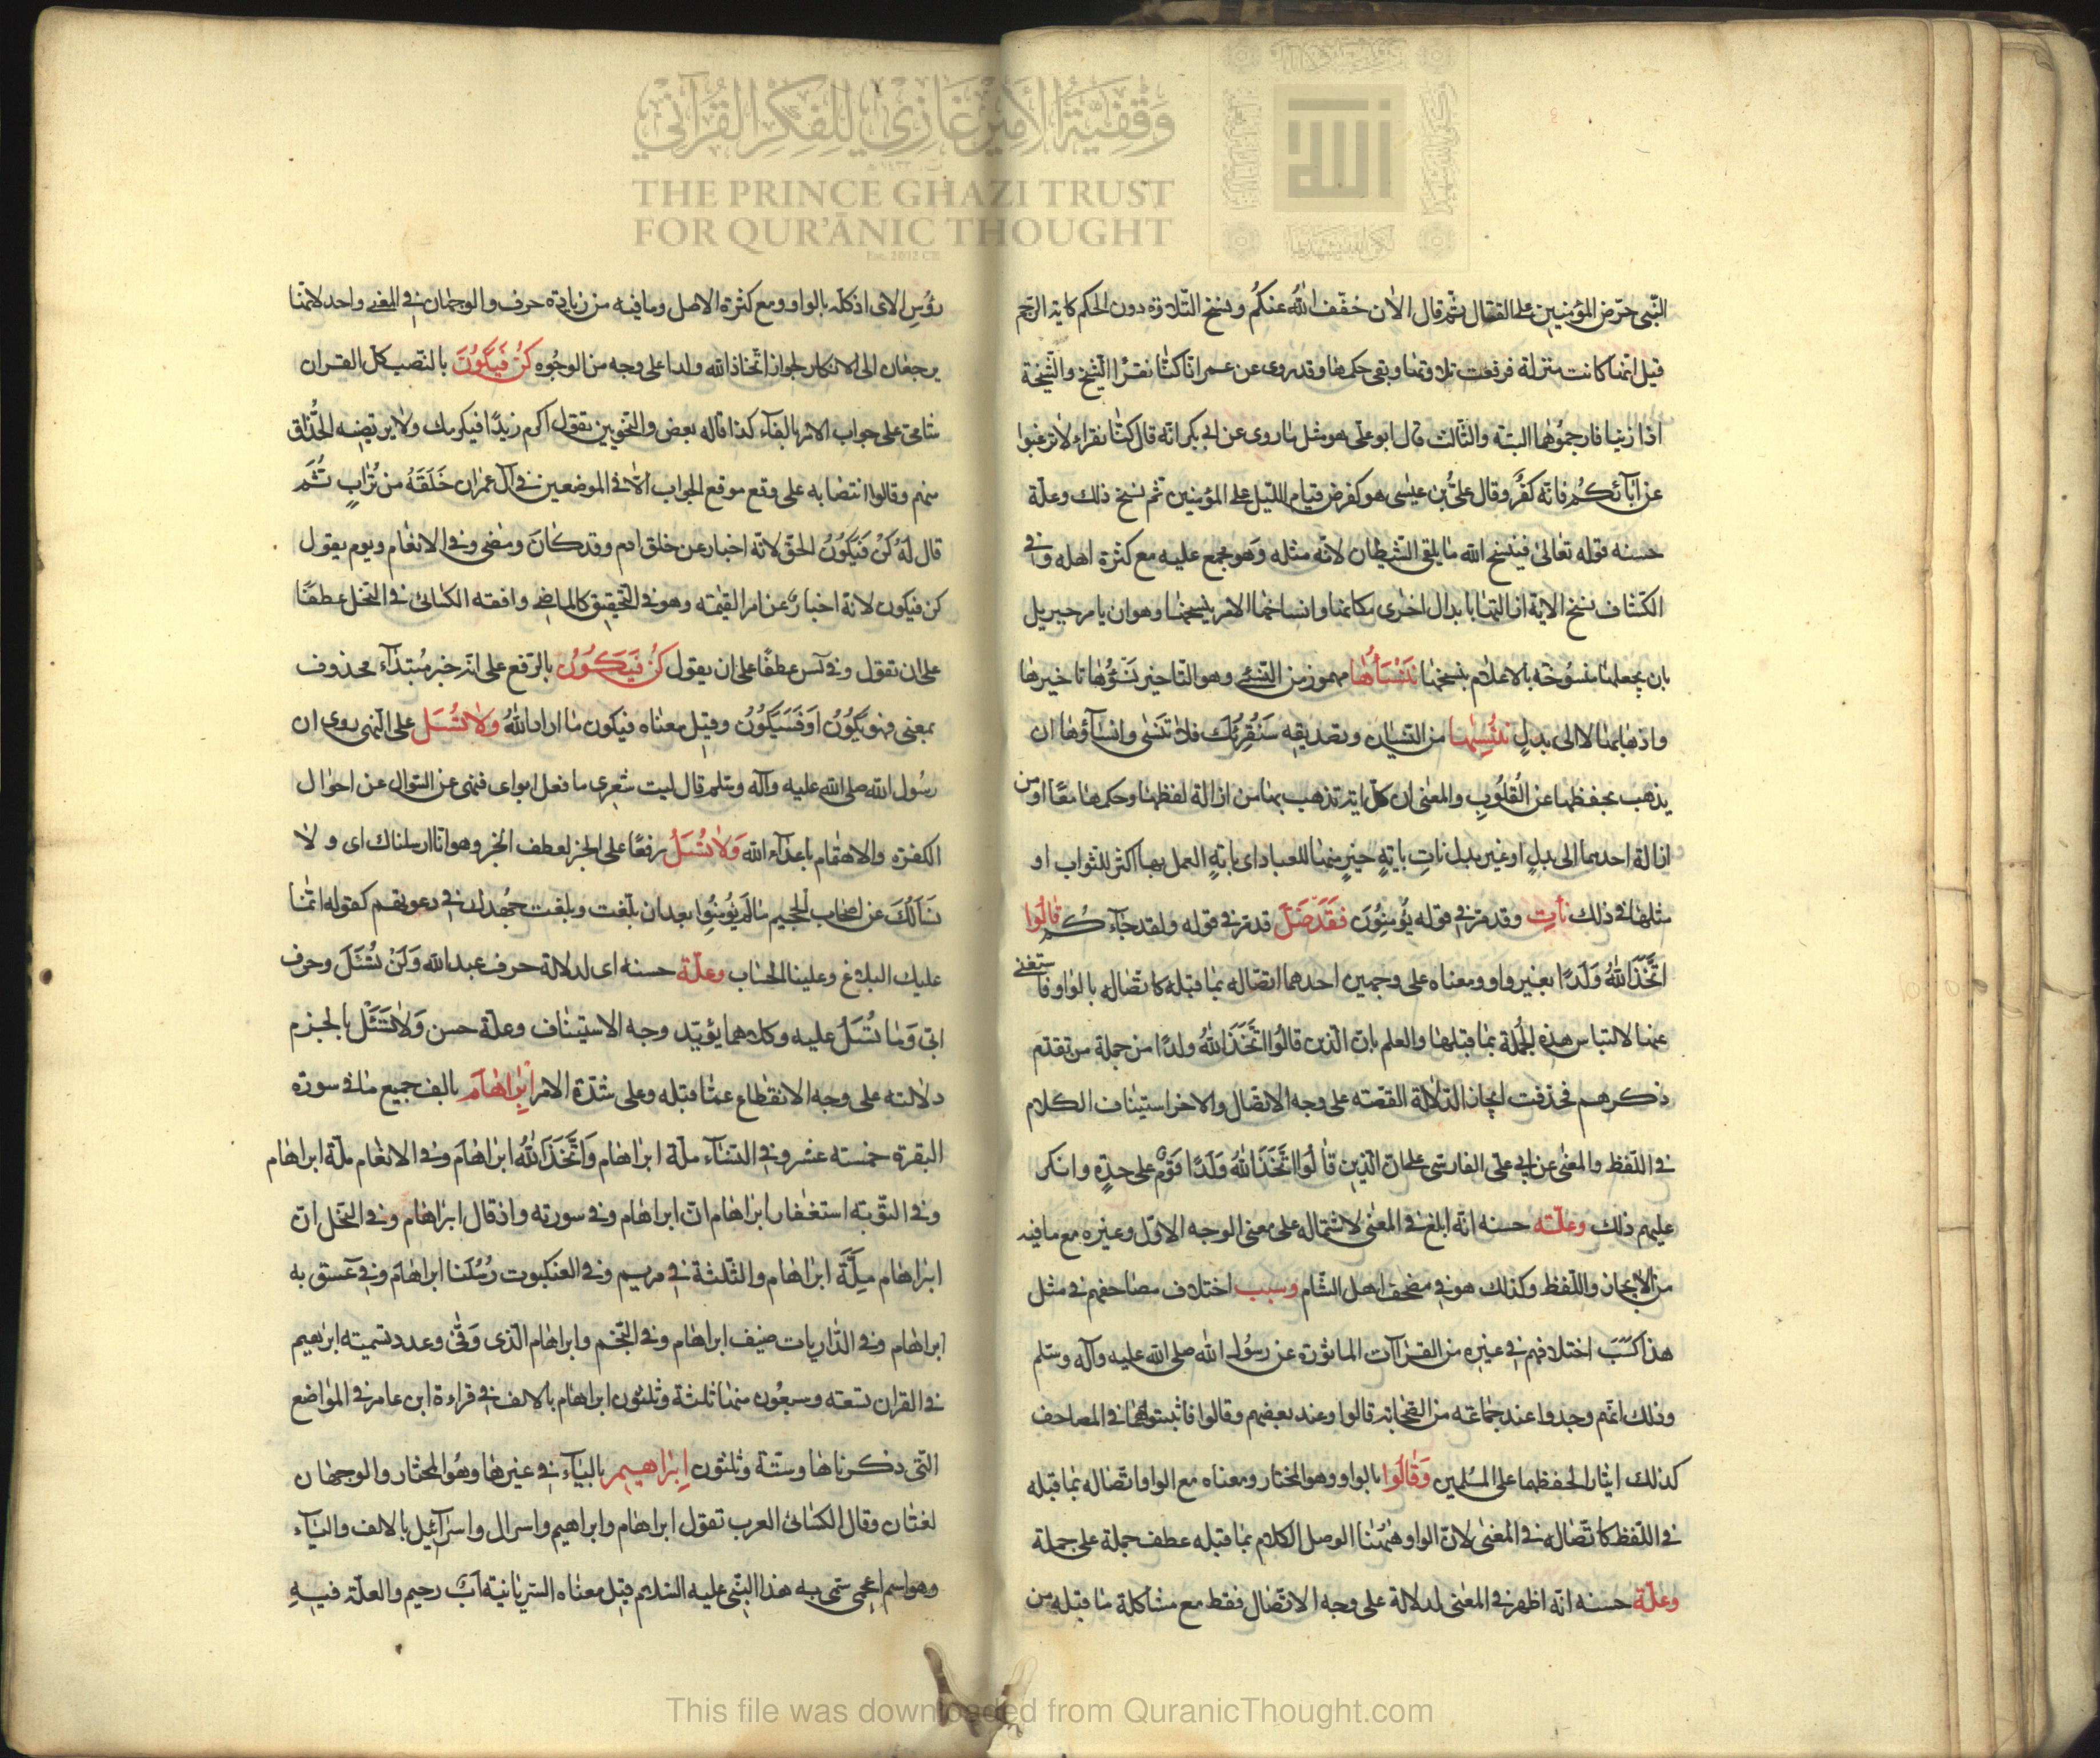 وقفية الأمير غازي للفكر القرآني
THE PRINCE GHAZI TRUST
FOR QUR'ĀNIC THOUGHT
Est. 2012 CE
الله
النّبى حرّض المؤمنين على القتال ثم قال الاٰن خفّف اللّٰه عنكم ونسخ التّلاوة دون الحكم كاية الرّجم
قيل انها كانت منزلة فرفعت تلاوتها وبقى حكمها وقد روى عن عمر انا كنّا نقرأ الشّيخ والشّيخة
اذا زنيا فارجموهما البتّه والثّالث قال ابو على هو مثل ما روى عن ابى بكر انّه قال كنّا نقراء لا ترغبوا
عن اٰبآئكم فانّه كفرٌ وقال علىّ بن عيسى هو كفرض قيام اللّيل على المؤمنين ثم نسخ ذلك وعلّة
حسنه قوله تعالى فينسخ اللّه ما يلقى الشّيطان لانّه مثله وهو مجمع عليه مع كثرة اهله وفى
الكشّاف نسخ الاية ازالتها بابدال اخرى مكانها وانساخها الامر بنسخها وهو ان يامر جبريل
بان يجعلها منسوخة بالاعلام بنسخها نَنْسَأْهٰا مهموز من النّسئ وهو التّاخير نَنْسَؤُهٰا تاخيرها
واذهابها لا الى بدلٍ نُنْسِهٰا من النّسيان وتصديقه سَنُقْرِئُكَ فلا تَنْسٰى وانسآؤها ان
يذهب بحفظها عن القُلُوبِ والمعنى ان كلّ اية تذهب بها من ازالة لفظها وحكمها معًا او من
ازالة احدهما الى بدلٍ او غير بدل ناتِ بايةٍ خيرٍ منها للعباد اى بايةٍ العمل بها اكثر للثواب او
مثلها فى ذلك نأتِ وقد مرّ فى قوله يُؤْمِنُونَ فَقَدْ ضَلَّ قد مرّ فى قوله ولقد جآءكُم قٰالُوا
اتَّخَذَ اللّٰهُ وَلَدًا بغير واو ومعناه على وجهين احدهما اتصاله بما قبله كاتّصاله بالواو فاستغنى
عنها لالتباس هذه الجُملة بما قبلها والعلم بانّ الّذين قالُوا اتَّخَذَ اللّٰهُ ولدًا من جملة من تقدّم
ذكرهم فحذفت ايجاز الدّلالة القصّه على وجه الاتصال والاخر استيناف الكلام
فى اللّفظ والمعنى عن ابى على الفارسى على انّ الّذين قٰالُوا اتَّخَذَ اللّٰهُ وَلَدًا قَوْمٌ على حدةٍ وانكر
عليهم ذلك وعلّته حسنه انّه ابلغ فى المعنى لاشتماله على معنى الوجه الاوّل وغيره مع ما فيه
من الايجاز واللّفظ وكذلك هو فى مصحف اهل الشّام وسبب اختلاف مصاحفهم فى مثل
هذا كسَبَب اختلافهم فى غيره من القرآآت الماثورة عن رسُول اللّه صلى اللّه عليه وآله وسلّم
وذلك انّهم وجدوا عند جماعة من الصّحابة قالوا وعند بعضهم وقالوا فاثبتوهما فى المصاحف
كذلك ايثار الحفظهما على المسلمين وَقٰالُوا بالواو وهو المختار ومعناه مع الواو اتصاله بما قبله
فى اللّفظ كاتّصاله فى المعنى لانّ الواو هٰهُنا الوصل الكلام بما قبله عطف جملة على جملة
وعلّة حسنه انّه اظهر فى المعنى لدلالة على وجه الاتّصال فقط مع مشاكلة ما قبله من
رؤسِ الاى اذ كلّه بالواو ومع كثرة الاصل وما فيه من زيادة حرف والوجهان فى المعنى واحد لانّهما
يرجعان الى الانكار لجواز اتّخاذ اللّه ولدا على وجه من الوجُوه كُنْ فَيَكُونَ بالنّصب كلّ القران
شامى على جواب الامر بالفآء كذا قاله بعض والنّحويين تقول اكرم زيدًا فيكرمك ولا يرتضيه الحُذّاق
منهم وقالوا انتصابه على وقع موقع الجواب الّا فى الموضعين فى آل عمران خَلَقَهُ من تُرٰابٍ ثُمّ
قال لَهُ كُنْ فَيَكُونُ الحقّ لانّه اخبار عن خلق ادم وقد كانَ ومضى وفى الانعام ويوم يقول
كن فيكون لانّه اخبارٌ عن امر القيٰمة وهو فى التّحقيق كالماضى وافقه الكسائى فى النّحل عطفًا
على ان تقول وفى يٰس عطفًا على ان يقول كُنْ فَيَكُونُ بالرّفع على انّه خبر مُبتدآء محذوف
بمعنى فهو يَكُونُ اَوفَسَيَكُونُ وقيل معناه فيكون ما اراد اللّٰهُ وَلاٰ تَسْئَلْ على النّهى روى ان
رسُول اللّه صلى اللّه عليه وآله وسلّم قال ليت شعرى ما فعل ابواى فنهى عن السّوال عن احوال
الكفرة والاهتمام باعدآء اللّه وَلاٰ تُسْئَلُ رفعًا على الخبر لعطف الخبر وهو انّا ارسلناك اى ولا
نَسْألُكَ عن اصحاب الجحيم ما لهم لَمْ يُؤمِنُوا بعد ان بلّغت وبلغت جُهدك فى دعوتهم كقوله انّما
عليك البلاغ وعلينا الحساب وعلّة حسنه اى لدلالة حرف عبد اللّه وَلَنْ تُسْئَلَ وحرف
ابىّ وَمٰا تُسْئَلُ عليه وكلاهما يؤيّد وجه الاستيناف وعلّة حسن وَلاٰ تَسْئَلْ بالجزم
دلالته على وجه الانقطاع عمّا قبله وعلى شدّة الامر اِبْرٰاهٰامَ بالف جميع ما فى سورة
البقرة خمسته عشر وفى النّسآء ملّة ابراهام وَاتَّخَذَ اللّٰهُ ابراهامَ وفى الانعام ملّة ابراهام
وفى التّوبته استغفار ابراهام انّ ابراهام وفى سورته واذ قال ابراهام وفى النّحل انّ
ابراهام مِلّةَ ابراهام والثّلثة فى مريم وفى العنكبوت رُسُلُنا ابراهامَ وفى عٓسق به
ابراهام وفى الذّاريات ضيف ابراهام وفى النّجم وابراهام الّذى وَفّى وعدد تسميته ابرٰهيم
فى القران تسعته وسبعُون منها ثلثة وثلثون ابراهام بالالف فى قراءة ابن عامر فى المواضع
الّتى ذكرناها وستّة وثلثون اِبْرٰاهيم بالياء فى غيرها وهُو المختار والوجهان
لغتان وقال الكسائى العرب تقول ابراهام وابراهيم واسرال واسرآئيل بالالف واليآء
وهو اسم اعجمى سمّى به هذا النّبى عليه السّلام قيل معناه السّريانية ابٌ رحيم والعلّة فيهِ
This file was downloaded from QuranicThought.com